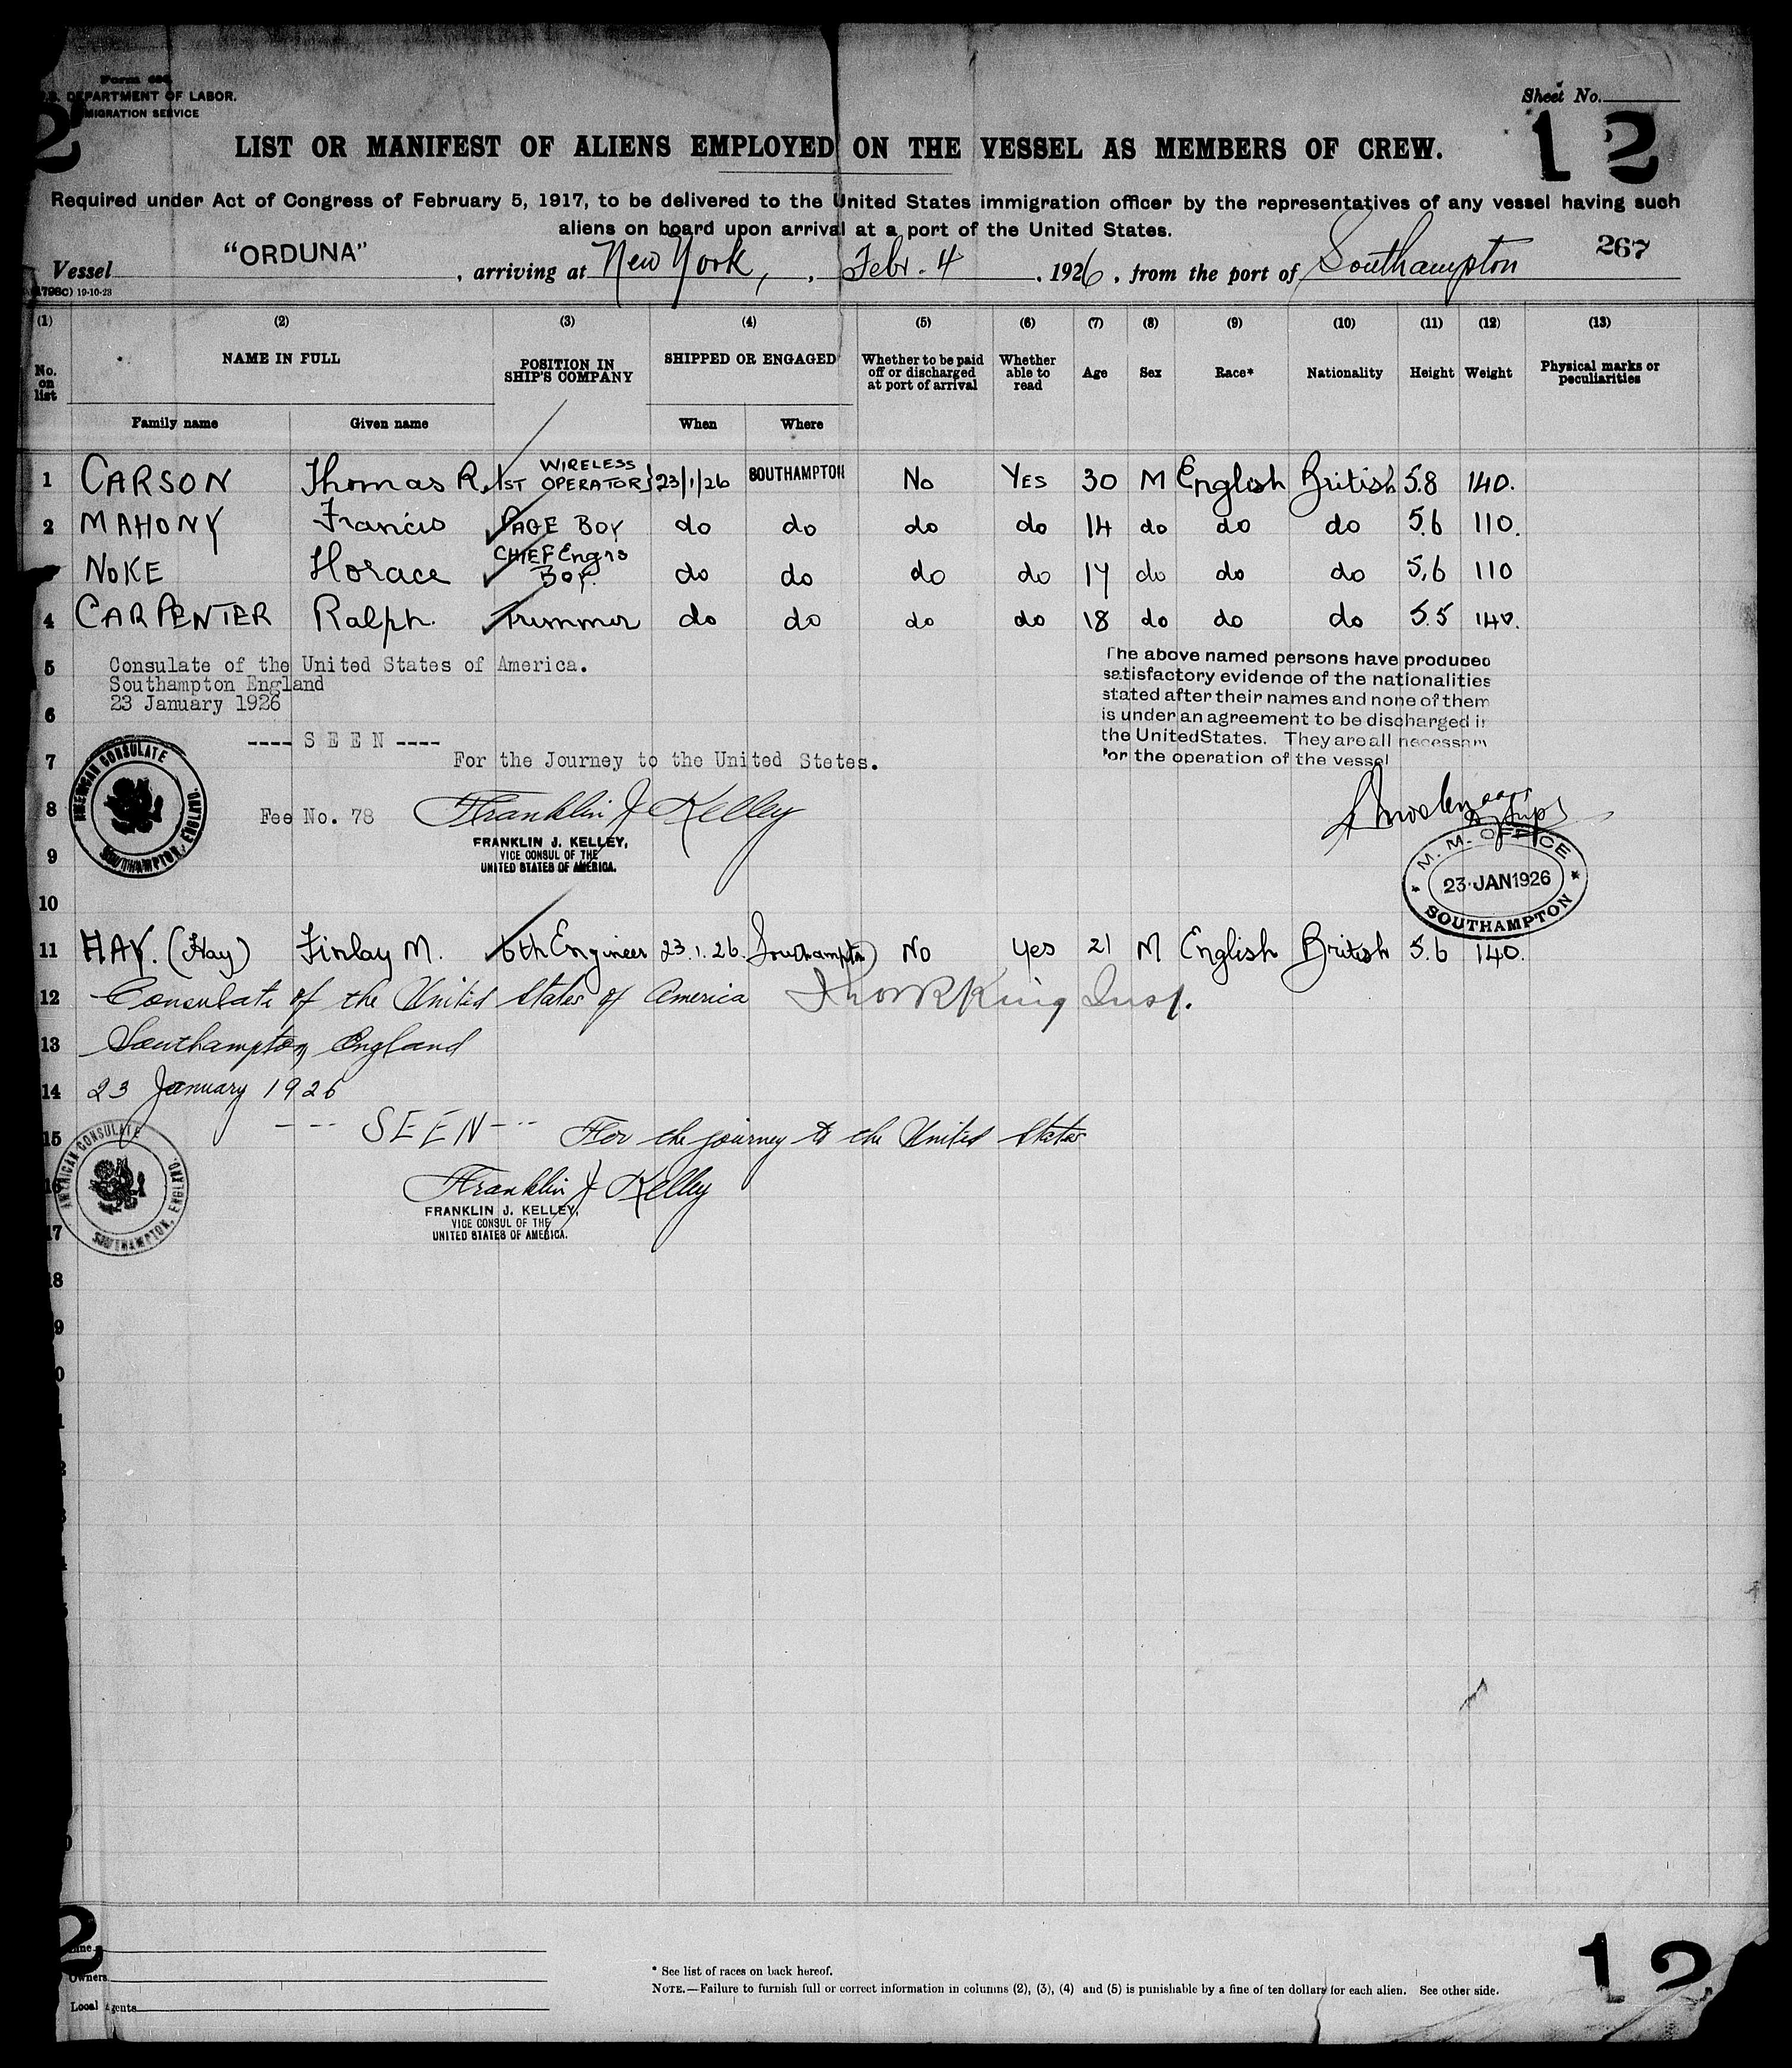 Form 680
U.S. DEPARTMENT OF LABOR.
IMMIGRATION SERVICE
Sheet No.
2
12
LIST OR MANIFEST OF ALIENS EMPLOYED ON THE VESSEL AS MEMBERS OF CREW.
Required under Act of Congress of February 5, 1917, to be delivered to the United States immigration officer by the representatives of any vessel having such
aliens on board upon arrival at a port of the United States.
267
Vessel "ORDUNA", arriving at New York, , Febr. 4, 1926, from the port of Southampton
(1798C) 19-10-23
(1) (2) (3) (4) (5) (6) (7) (8) (9) (10) (11) (12) (13)
No. on list NAME IN FULL POSITION IN SHIP'S COMPANY SHIPPED OR ENGAGED Whether to be paid off or discharged at port of arrival Whether able to read Age Sex Race* Nationality Height Weight Physical marks or peculiarities
Family name Given name When Where
1 CARSON Thomas R. 1ST WIRELESS OPERATOR 23/1/26 SOUTHAMPTON No YES 30 M English British 5.8 140.
2 MAHONY Francis PAGE BOY do do do do 14 do do do 5.6 110.
NOKE Horace CHIEF Engrs BOY. do do do do 17 do do do 5.6 110
4 CARPENTER Ralph. Trimmer do do do do 18 do do do 5.5 140.
5 Consulate of the United States of America.
Southampton England
6 23 January 1926
The above named persons have produced
satisfactory evidence of the nationalities
stated after their names and none of them
is under an agreement to be discharged in
the United States. They are all necessary
for the operation of the vessel
---- S E E N ----
7 For the Journey to the United Stetes.
AMERICAN CONSULATE
SOUTHAMPTON, ENGLAND.
8 Fee No. 78 Franklin J Kelley
FRANKLIN J. KELLEY,
9 VICE CONSUL OF THE
UNITED STATES OF AMERICA.
M. M. OFFICE
23 JAN 1926
SOUTHAMPTON
10
11 HAY. (Hay) Finlay M. 6th Engineer 23.1.26. Southampton No Yes 21 M English British 5.6 140.
12 Consulate of the United States of America King Insp.
13 Southampton, England
14 23 January 1926
15 --- SEEN --- For the journey to the United States
AMERICAN CONSULATE
SOUTHAMPTON, ENGLAND.
16 Franklin J Kelley
FRANKLIN J. KELLEY,
17 VICE CONSUL OF THE
UNITED STATES OF AMERICA.
18
9
0
2
Line
Owners
Local Agents
* See list of races on back hereof.
NOTE.—Failure to furnish full or correct information in columns (2), (3), (4) and (5) is punishable by a fine of ten dollars for each alien. See other side.
12